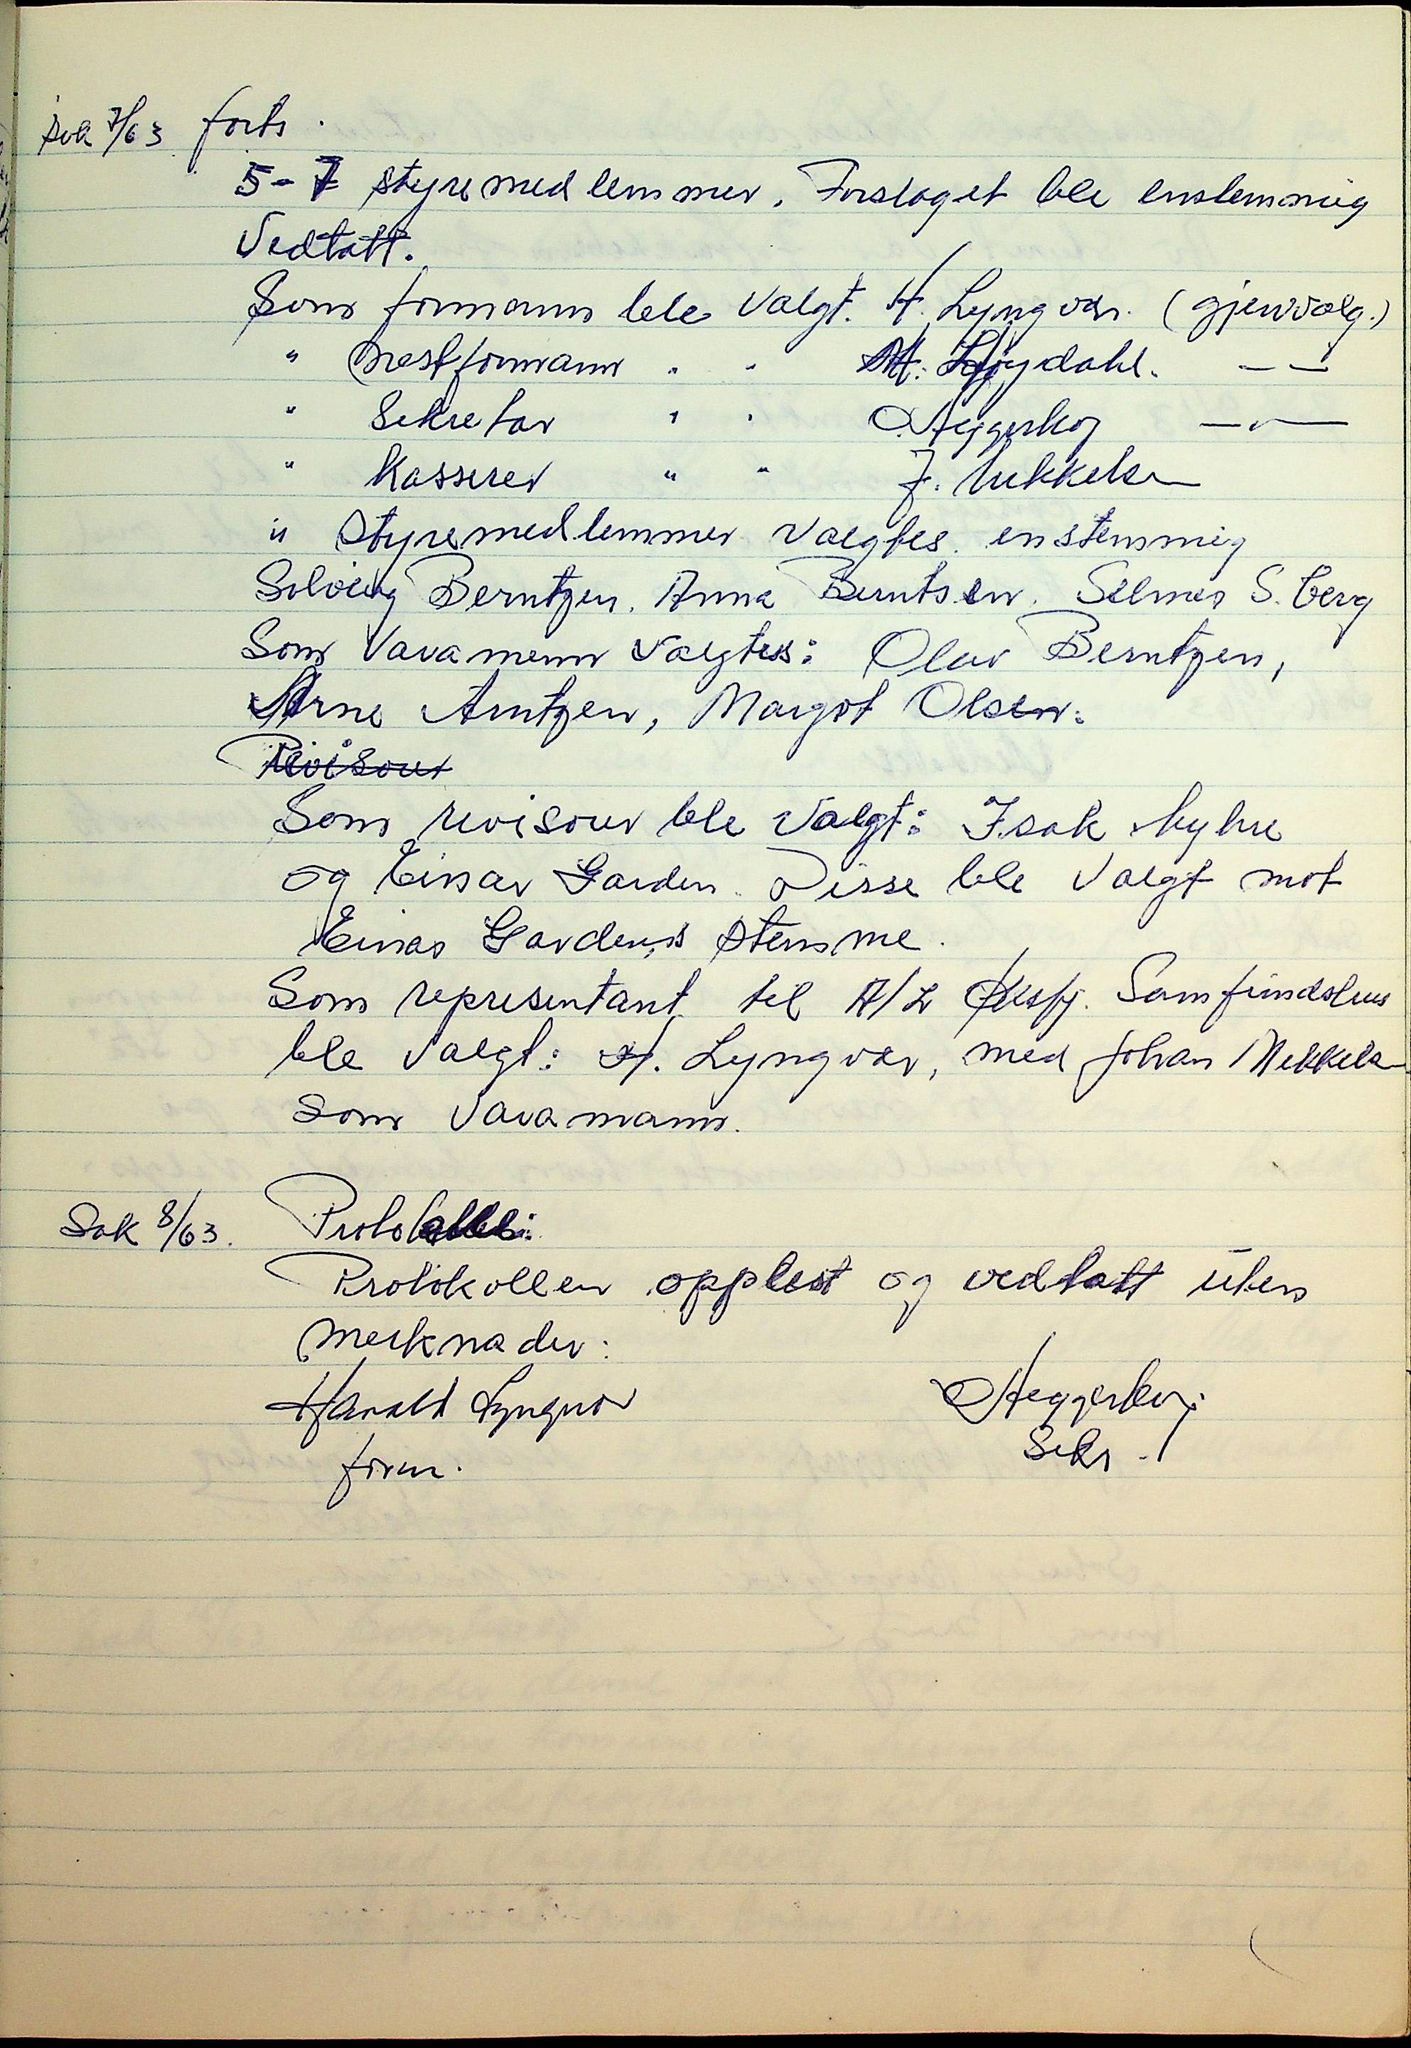 Sak 7/63 forts.
5-7 styremedlemmer. Forslaget ble enstemmig
Vedtatt.
Som formann ble Valgt. H. Lyngvær. (gjenvalg.)
" nestformann " " M. Høydahl. — —
" Sekretær " " O. Heggerskog — " —
" Kasserer " " J. Mikkelsen
" Styremedlemmer Valgtes enstemmig
Solveig Berntzen. Anna Berntsen. Selmer S. berg
Som Varamenn Valgtes: Olav Berntzen,
Arne Arntzen, Margot Olsen.
Revisour
Som revisour ble Valgt: Isak Myhre
og Einar Garden. Disse ble Valgt mot
Einar Gardens stemme.
Som representant til A/L Øksfj. Samfundshus
ble Valgt: H. Lyngvær, med Johan Mikkelsen
som Varamann.
Sak 8/63. Protokoll:
Protokollen opplest og vedtatt uten
merknader:
Harald Lyngvær O Heggerskog.
form. Sekr.